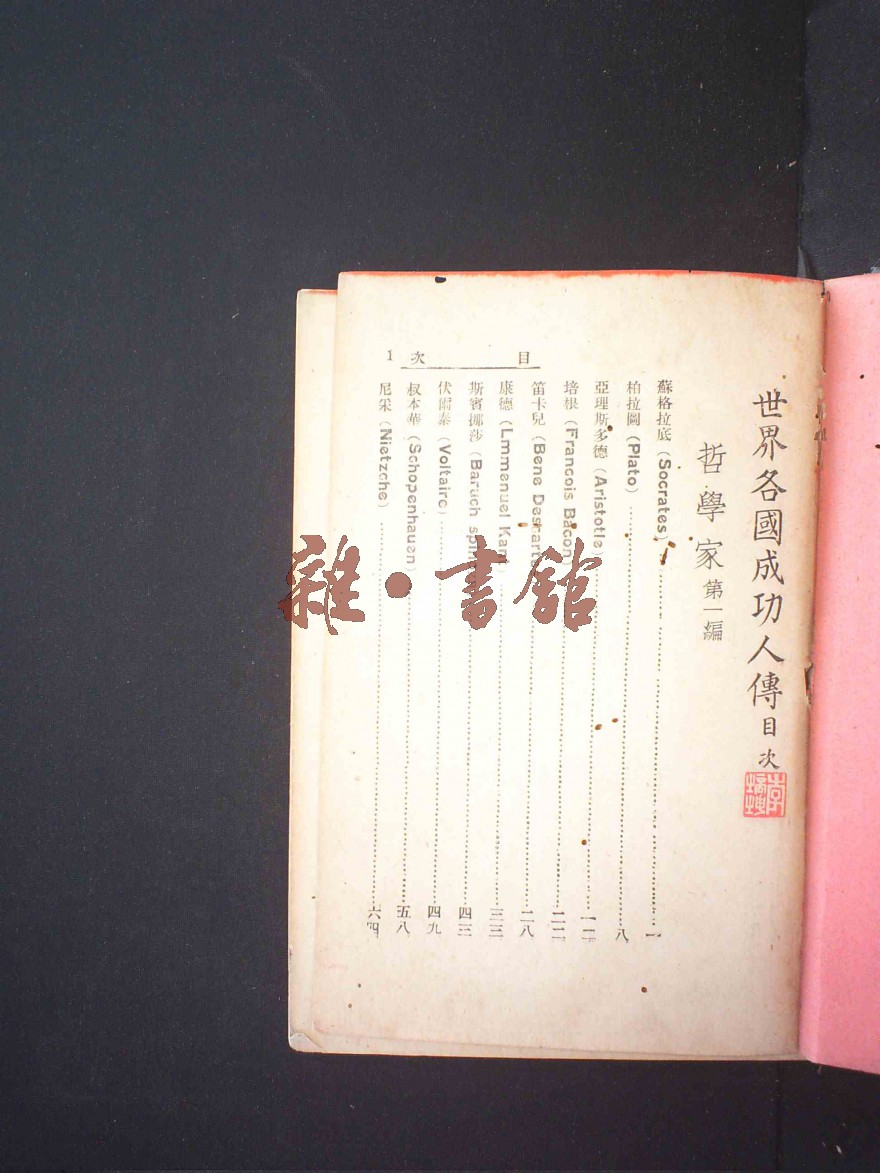 世界各國成功人傳目次
哲學家第一編
目次 1
蘇格拉底 (Socrates) 一
柏拉圖 (Plato) 八
亞理斯多德 (Aristotle)
培根 (Francois Bacon)
笛卡兒 (Bene Deshart 二八
康德 (Lmmenuel Kant 三三
斯賓挪莎 (Baruch spin 四三
伏爾泰 (Voltairc) 四九
叔本華 (Schopenhauen) 五八
尼采 (Nietzche) 六四
雜•書館